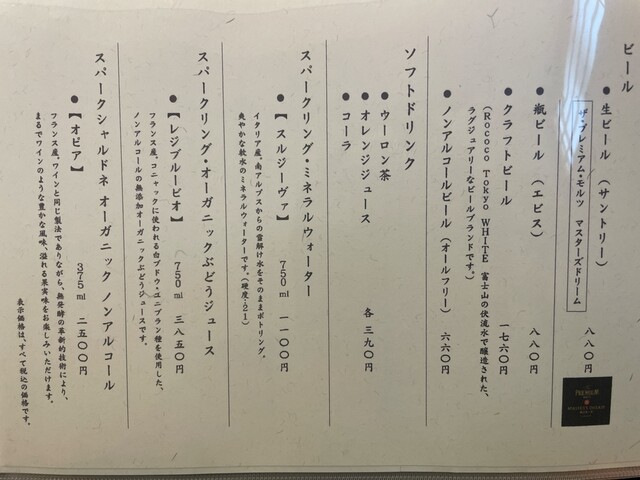 ビール
●生ビール（サントリー） 八八〇円
ザ・プレミアム・モルツ マスターズドリーム
●瓶ビール（エビス） 八八〇円
●クラフトビール 一七六〇円
（Rococo Tokyo WHITE 富士山の伏流水で醸造された、
ラグジュアリーなビールブランドです。）
●ノンアルコールビール（オールフリー） 六六〇円
ソフトドリンク
●ウーロン茶
●オレンジジュース 各 三九〇円
●コーラ
スパークリング・ミネラルウォーター
●【スルジーヴァ】 750ml 一一〇〇円
イタリア産。南アルプスからの雪解け水をそのままボトリング。
爽やかな軟水のミネラルウォーターです。（硬度:21）
スパークリング・オーガニックぶどうジュース
●【レジブルービオ】 750ml 三八五〇円
フランス産。コニャックに使われる白ブドウ・ユニブラン種を使用した、
ノンアルコールの無添加オーガニックぶどうジュースです。
スパークシャルドネ オーガニック ノンアルコール
●【オピア】 375ml 二五〇〇円
フランス産。ワインと同じ製法でありながら、無発酵の革新的技術により、
まるでワインのような豊かな風味、溢れる果実味をお楽しみいただけます。
表示価格は、すべて税込の価格です。